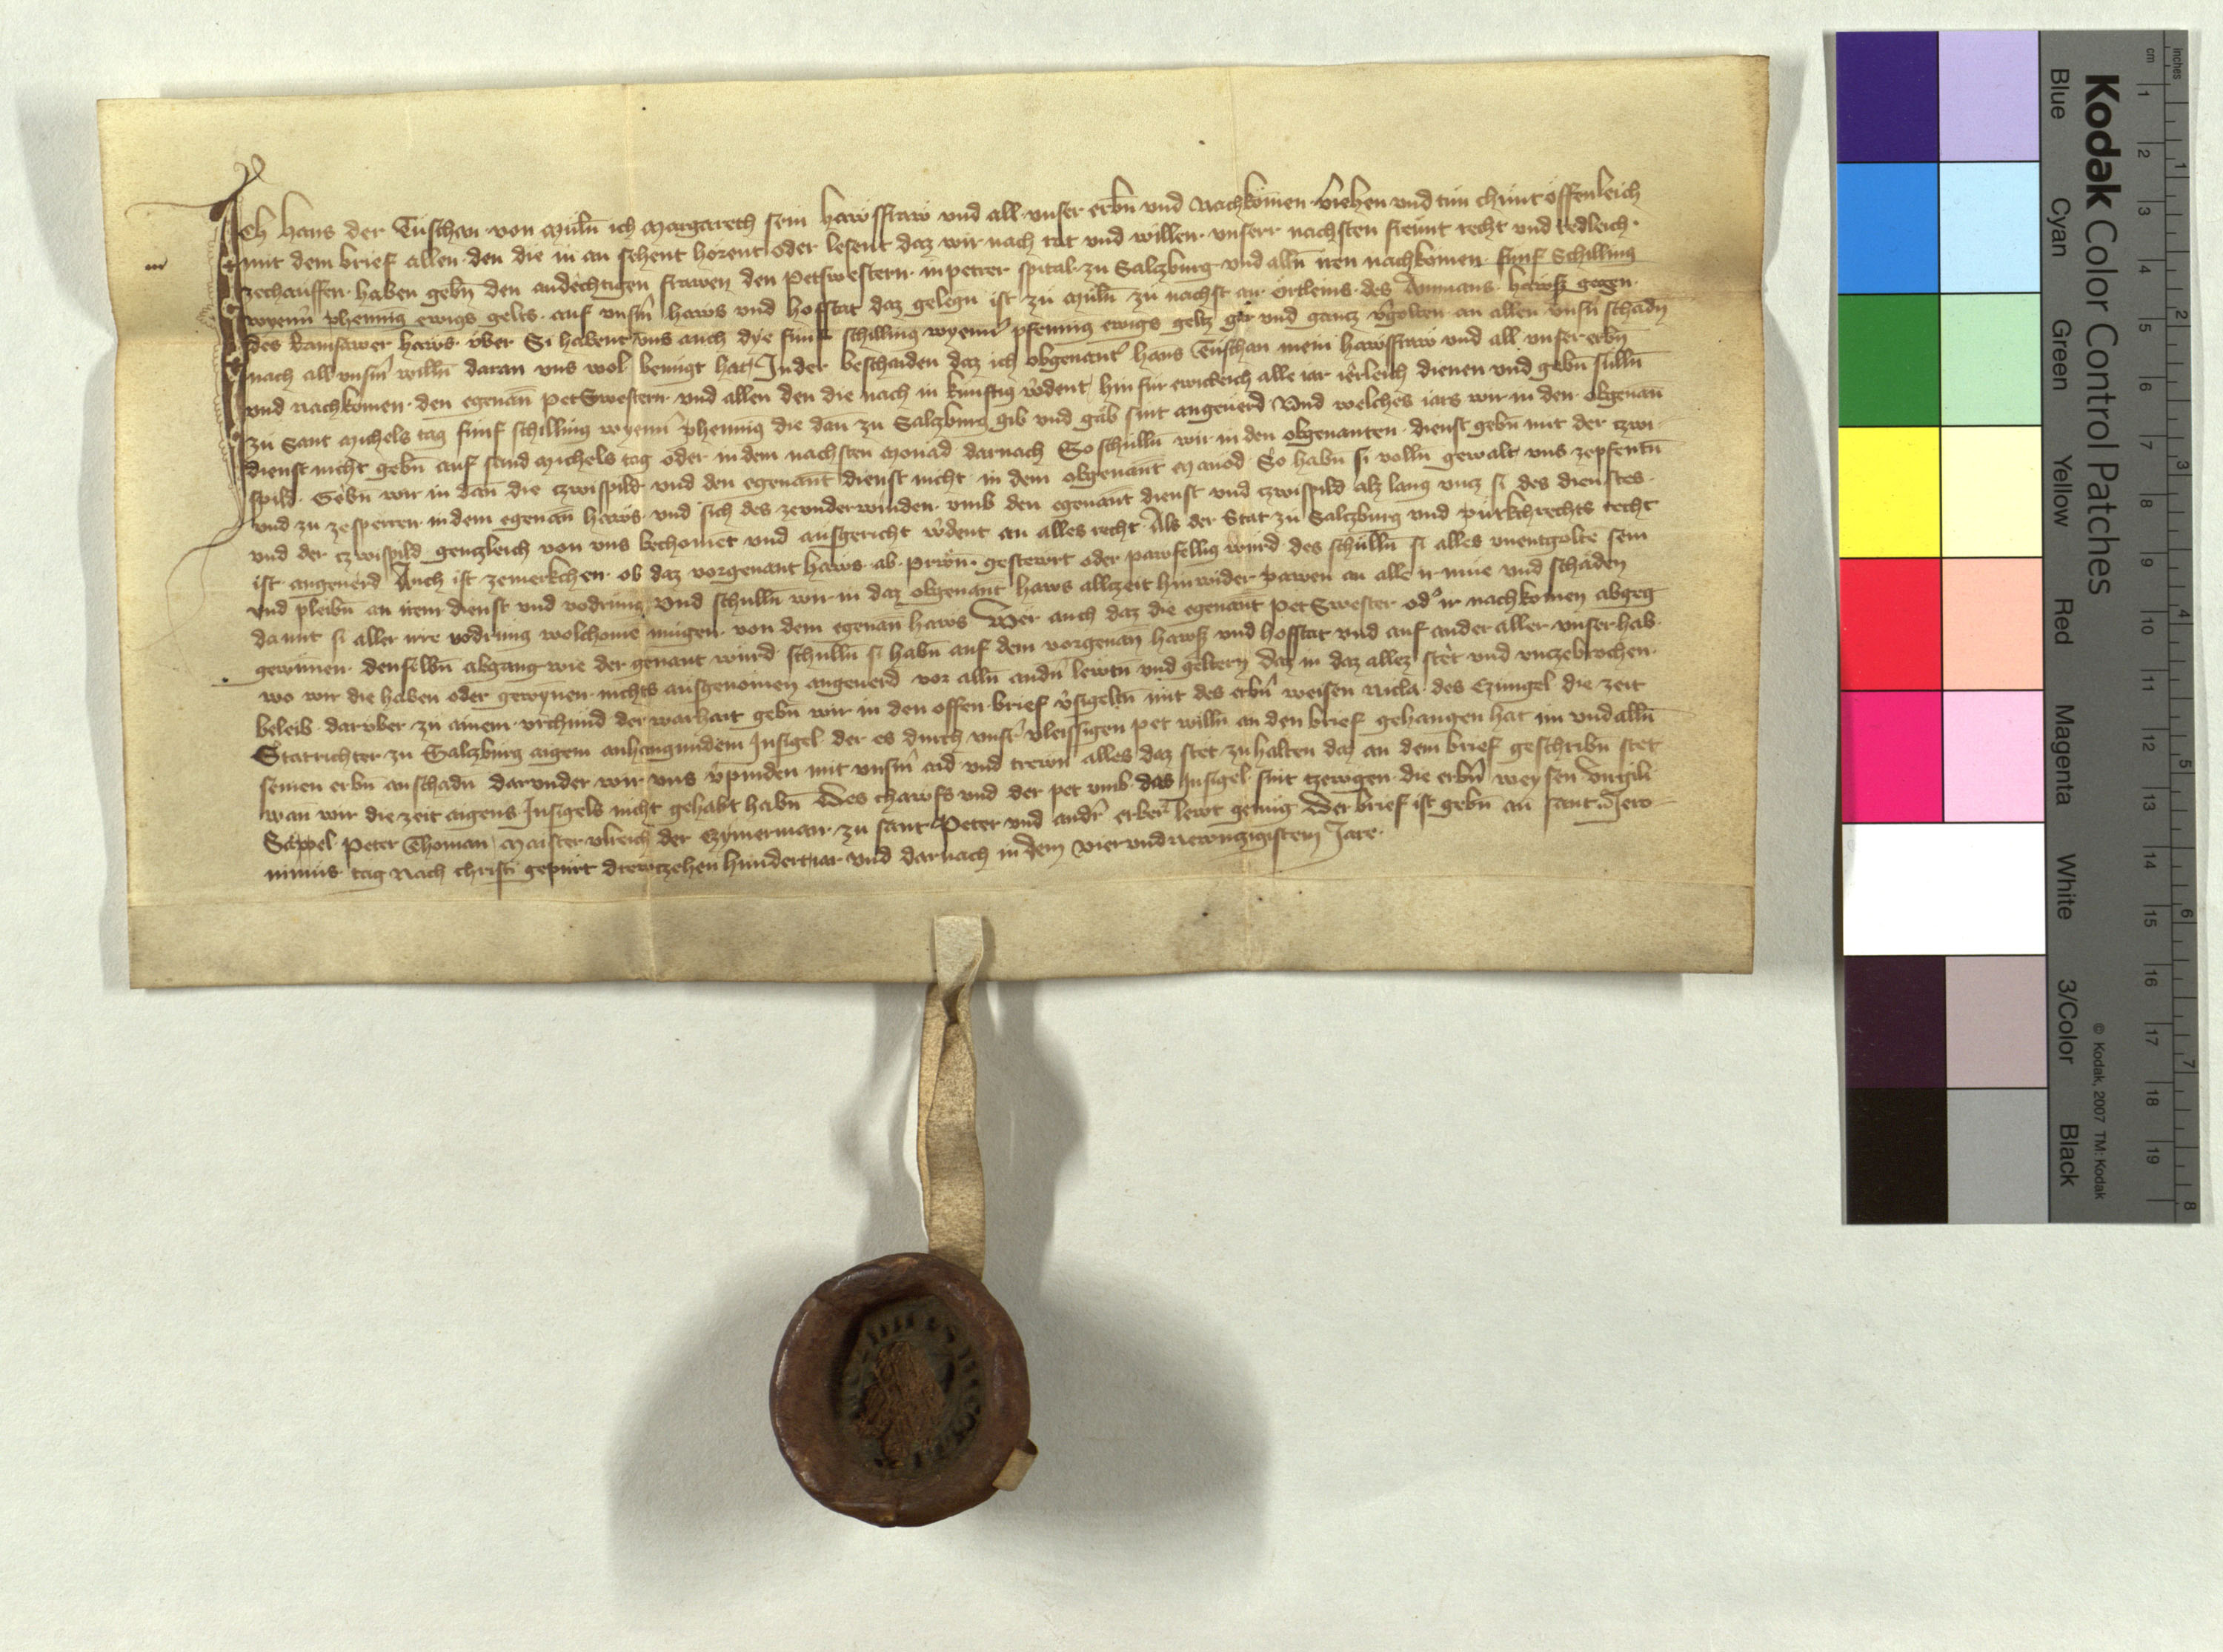 Ich Hans der Tuschan von Müln̄ ich Margareth sein hawsfraw vnd all vnser erbn̄ vnd Nachkomen v̄iehen vnd tun chunt offenleich
mit dem brief allen den die in an sehent hörent oder lesent daz wir nach rat vnd willen vnserr nachsten freunt recht vnd redleich
zechauffen haben gebn̄ den andechtigen frawen den Petswestern in petrer spital zu Salczburg vnd alln̄ iren nachkomen fünf Schilling
wyenn̄ phennig ewigs gelts auf vnserm̄ haws vnd hofstat daz gelegn̄ ist zu Müln̄ zu nachst an örtleins des Ammans hawss gegen
des Ramsawer haws über Si habent vns auch dye fünf schilling wyenn̄ pfennig ewigs geltz gar vnd gancz v̄golten an allen vnsn̄ schadn̄
nach all vnsm̄ willn̄ daran vns wol benügt hat In der beschaiden daz ich obgenant̄ hans Tuschan mein hawsfraw vnd all vnser erbn̄
vnd nachkomen den egenan̄ petSwestern vnd allen den die nach in künftig w̄dent hin für ewickleich alle iar iërleich dienen vnd gebn̄ sulln̄
zu Sant Michels tag fünf schilling wyenn̄ phennig die dan̄ zu Salczburg gib vnd gäb sint angeuerd Vnd welches iars wir in den obgenan̄
dienst nicht gebn̄ auf sand Michels tag oder in dem nachsten Monad darnach So schülln̄ wir in den obgenanten dienst gebn̄ mit der czwi
spild Gëbn̄ wir in dan̄ die czwispild vnd den egenan̄t dienst nicht in dem obgenan̄t Manod So habn̄ si volln̄ gewalt vns zepfentn̄
vnd zu zesperren in dem egenan̄ haws vnd sich des zevnderwinden vmb den egenan̄t dienst vnd czwispild alz lang vncz si des dienstes
vnd der czwispild genczleich von vns bechomet vnd ausgericht w̄dent an alles recht Als der Stat zu Salczburg vnd purkchrechts recht
ist angeuerd Auch ist zemerkchen ob daz vorgenant haws ab prün̄ gestewrt oder pawfellig würd des schülln̄ si alles vnentgolte sein
vnd pleibn̄ an irem dienst vnd vodrung Vnd schulln̄ wir in daz obgenan̄t haws allczeit hinwider pawen an alle ir müe vnd schäden
damit si aller irre vodrung wolchome mügen von dem egenan̄ haws Wer auch daz die egenan̄t petSwester od' ir nachkomen abgeg
gewinnen denselbn̄ abgang wie der genant würd schulln̄ si habn̄ auf dem vorgenan̄ hawss vnd hofstat vnd auf ander aller vnser hab
wo wir die haben oder gewynnen nichts ausgenomen angeuerd vor alln̄ andn̄ lewtn̄ vnd geltern Daz in daz allez stet vnd vnczebrochen
beleib darüber zu ainem vrchünd der warhait gebn̄ wir in den offen brief v̄sigeltn̄ mit des erbn̄ weisen Nicla des Ezingel die zeit
Statrichter zu Salczburg aigem anhangundem Insigel der es durch vnsr̄ vleissigen pet willn̄ an den brief gehangen hat im vnd alln̄
seinen erbn̄ an schadn̄ darunder wir vns v̄pinden mit vnsm̄ aid vnd trewn̄ alles daz stet zu halten daz an dem brief geschribn̄ stet
wan̄ wir die zeit aigens Insigels nicht gehabt habn̄ Des chawfs vnd der pet vmb das Insigel sint czewgen die erbn̄ weysen Virgili
Säppel Peter Thoman Maister vlreich der Czymerman zu sant Peter vnd andr̄ erber lewt genüg Der brief ist gebn̄ an sant Jero
nimus tag Nach christi gepürt drewczehen hundert iar vnd darnach in dem vier vnd Newnczigistem Jare
Kodak Color Control Patches
Blue Cyan Green Yellow Red Magenta White 3/Color Black
© Kodak, 2007 TM: Kodak
inches 1 2 3 4 5 6 7 8
cm 1 2 3 4 5 6 7 8 9 10 11 12 13 14 15 16 17 18 19